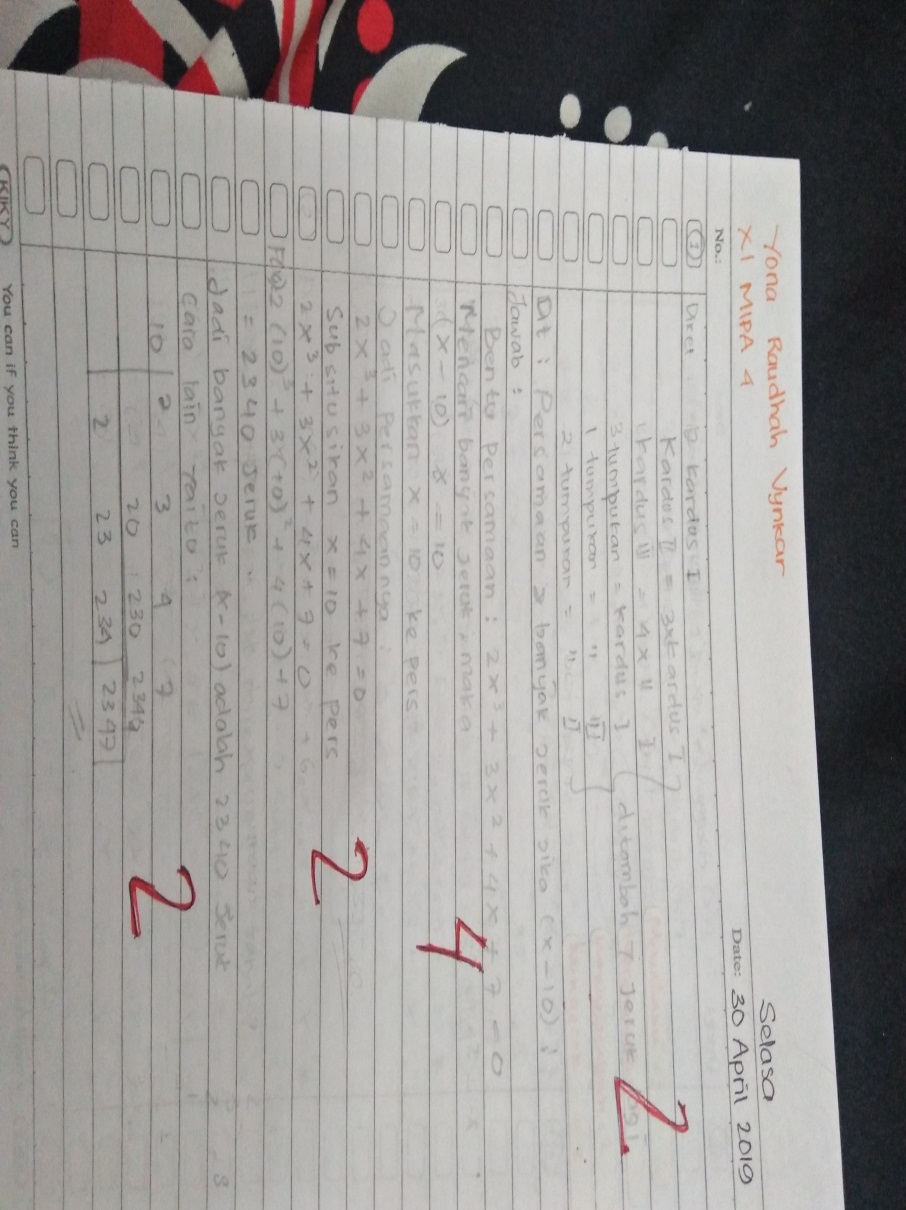 Yona Raudhah Vynkar
Selasa
XI MIPA 4
Date: 30 April 2019
No.:
1 Diket kardos I
Kardos II = 3x kardus I
kardus III = 4x " I
3 tumpukan = kardus I
ditambah 7 jeruk lagi
1 tumpukan = " III
2 tumpukan = " II
2
Dit : Persamaan > banyak jeruk jika (x-10)?
Jawab :
Bentu persamaan : 2x³ + 3x² + 4x + 7 = 0
Mencari banyak jeruk, maka
4
(x - 10) x = 10
Masukkan x = 10 ke pers
Jadi persamaannya :
2x³ + 3x² + 4x + 7 = 0
Subsitusikan x = 10 ke pers
2
2x³ + 3x² + 4x + 7 = 0
2 (10)³ + 3(10)² + 4(10) + 7
= 2340 jeruk.
Jadi banyak jeruk (x-10) adalah 2340 jeruk
Cara lain yaitu :
10 2 3 4 7
20 230 2340
2
2 23 234 2347
KIKY You can if you think you can